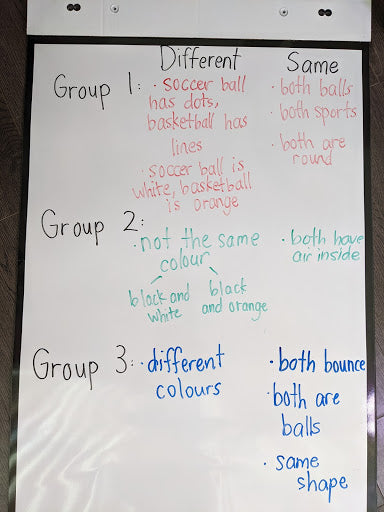 Different Same
Group 1: · soccer ball · both balls
has dots, · both sports
basketball has
lines · both are
round
· soccer ball is
white, basketball
is orange
Group 2:
· not the same · both have
colour air inside
black and black
white and orange
Group 3: · different · both bounce
colours · both are
balls
· same
shape